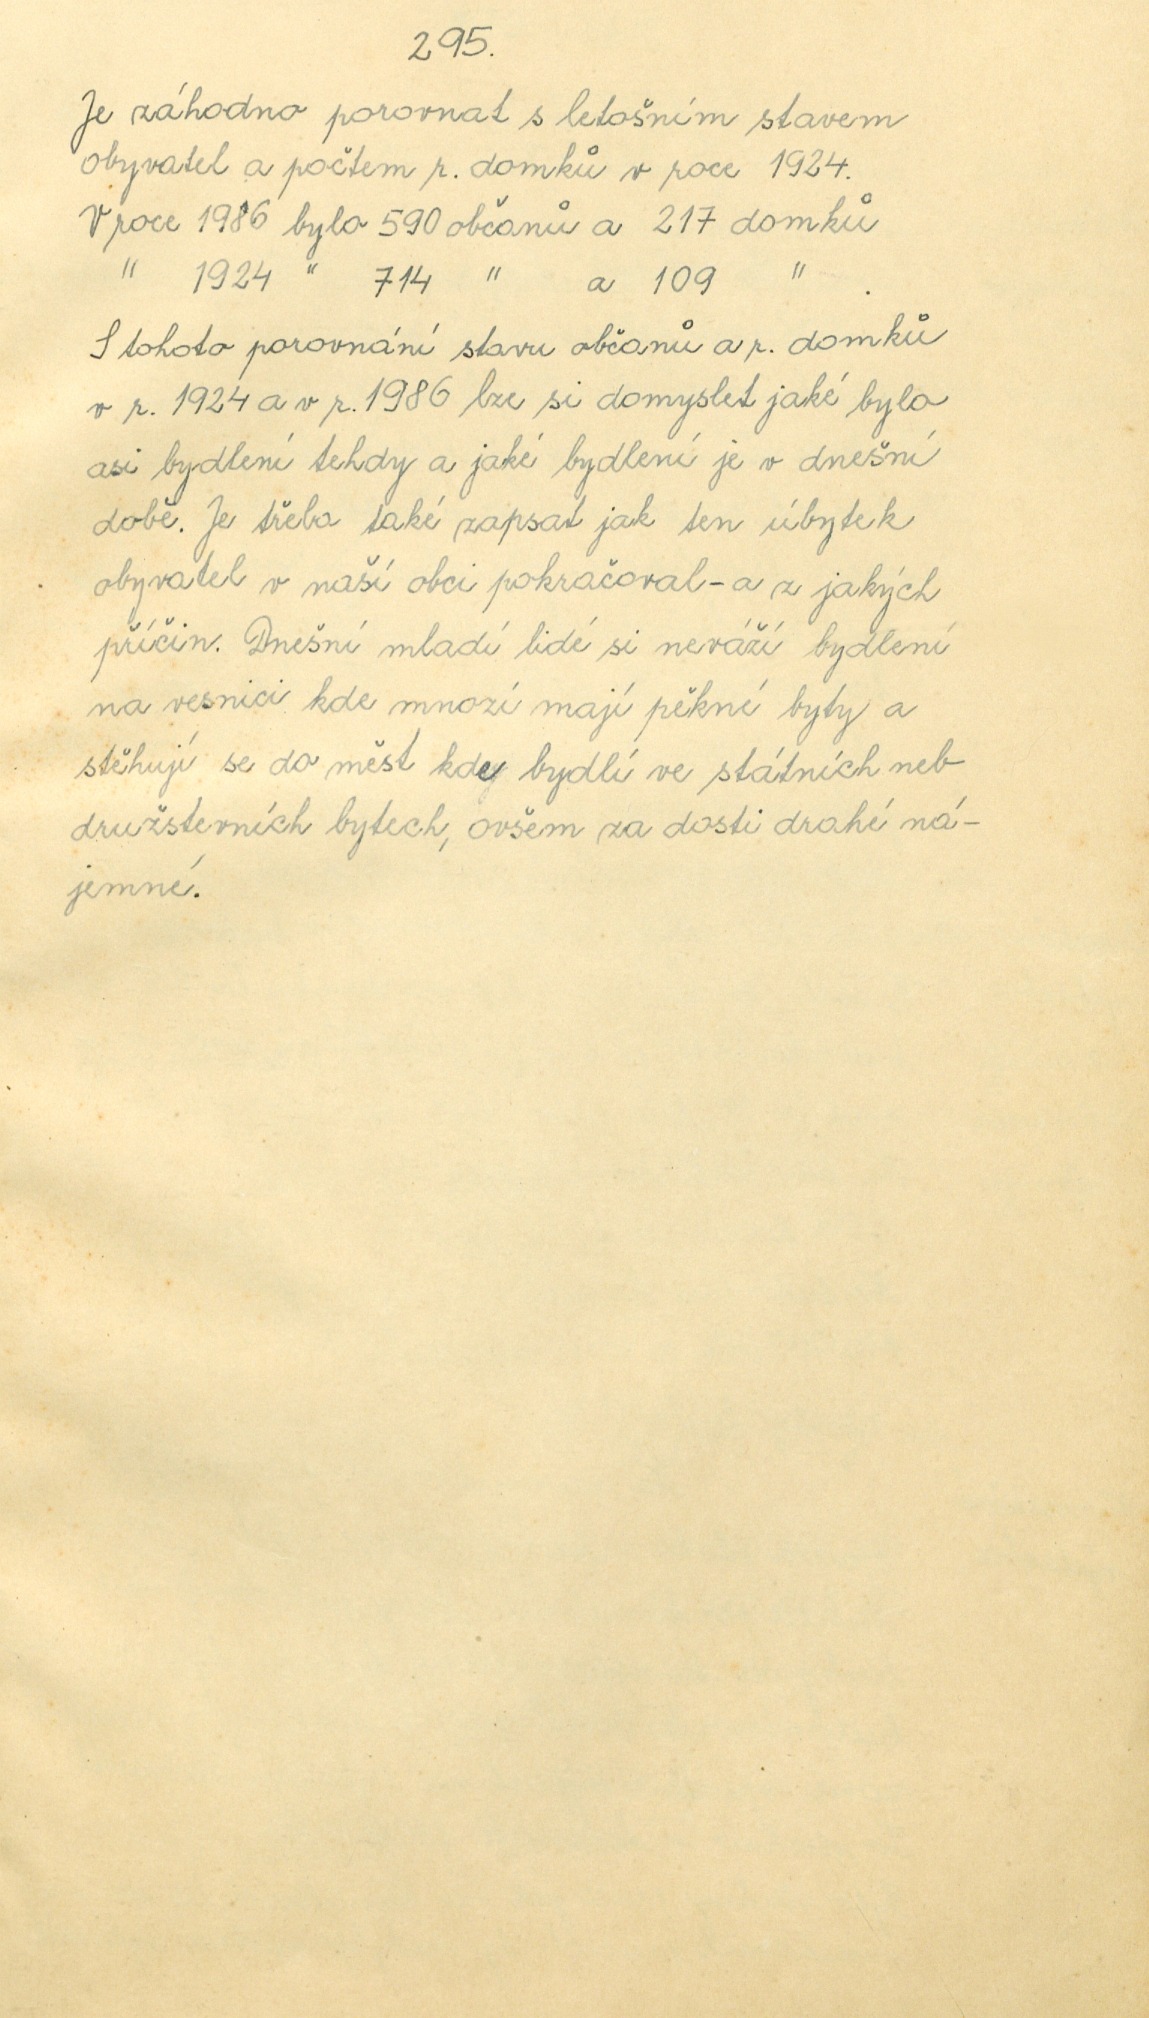 295.
Je záhodno porovnat s letošním stavem
obyvatel a počtem r. domků v roce 1924.
V roce 1986 bylo 590 občanů a 217 domků
" 1924 " 714 " a 109 " .
S tohoto porovnání stavu občanů a r. domků
v r. 1924 a v r. 1986 lze si domyslet jaké bylo
asi bydlení tehdy a jaké bydlení je v dnešní
době. Je třeba také zapsat jak ten úbytek
obyvatel v naší obci pokračoval - a z jakých
příčin. Dnešní mladí lidé si neváží bydlení
na vesnici kde mnozí mají pěkné byty a
stěhují se do měst kdey bydlí ve státních neb
družstevních bytech, ovšem za dosti drahé ná-
jemné.